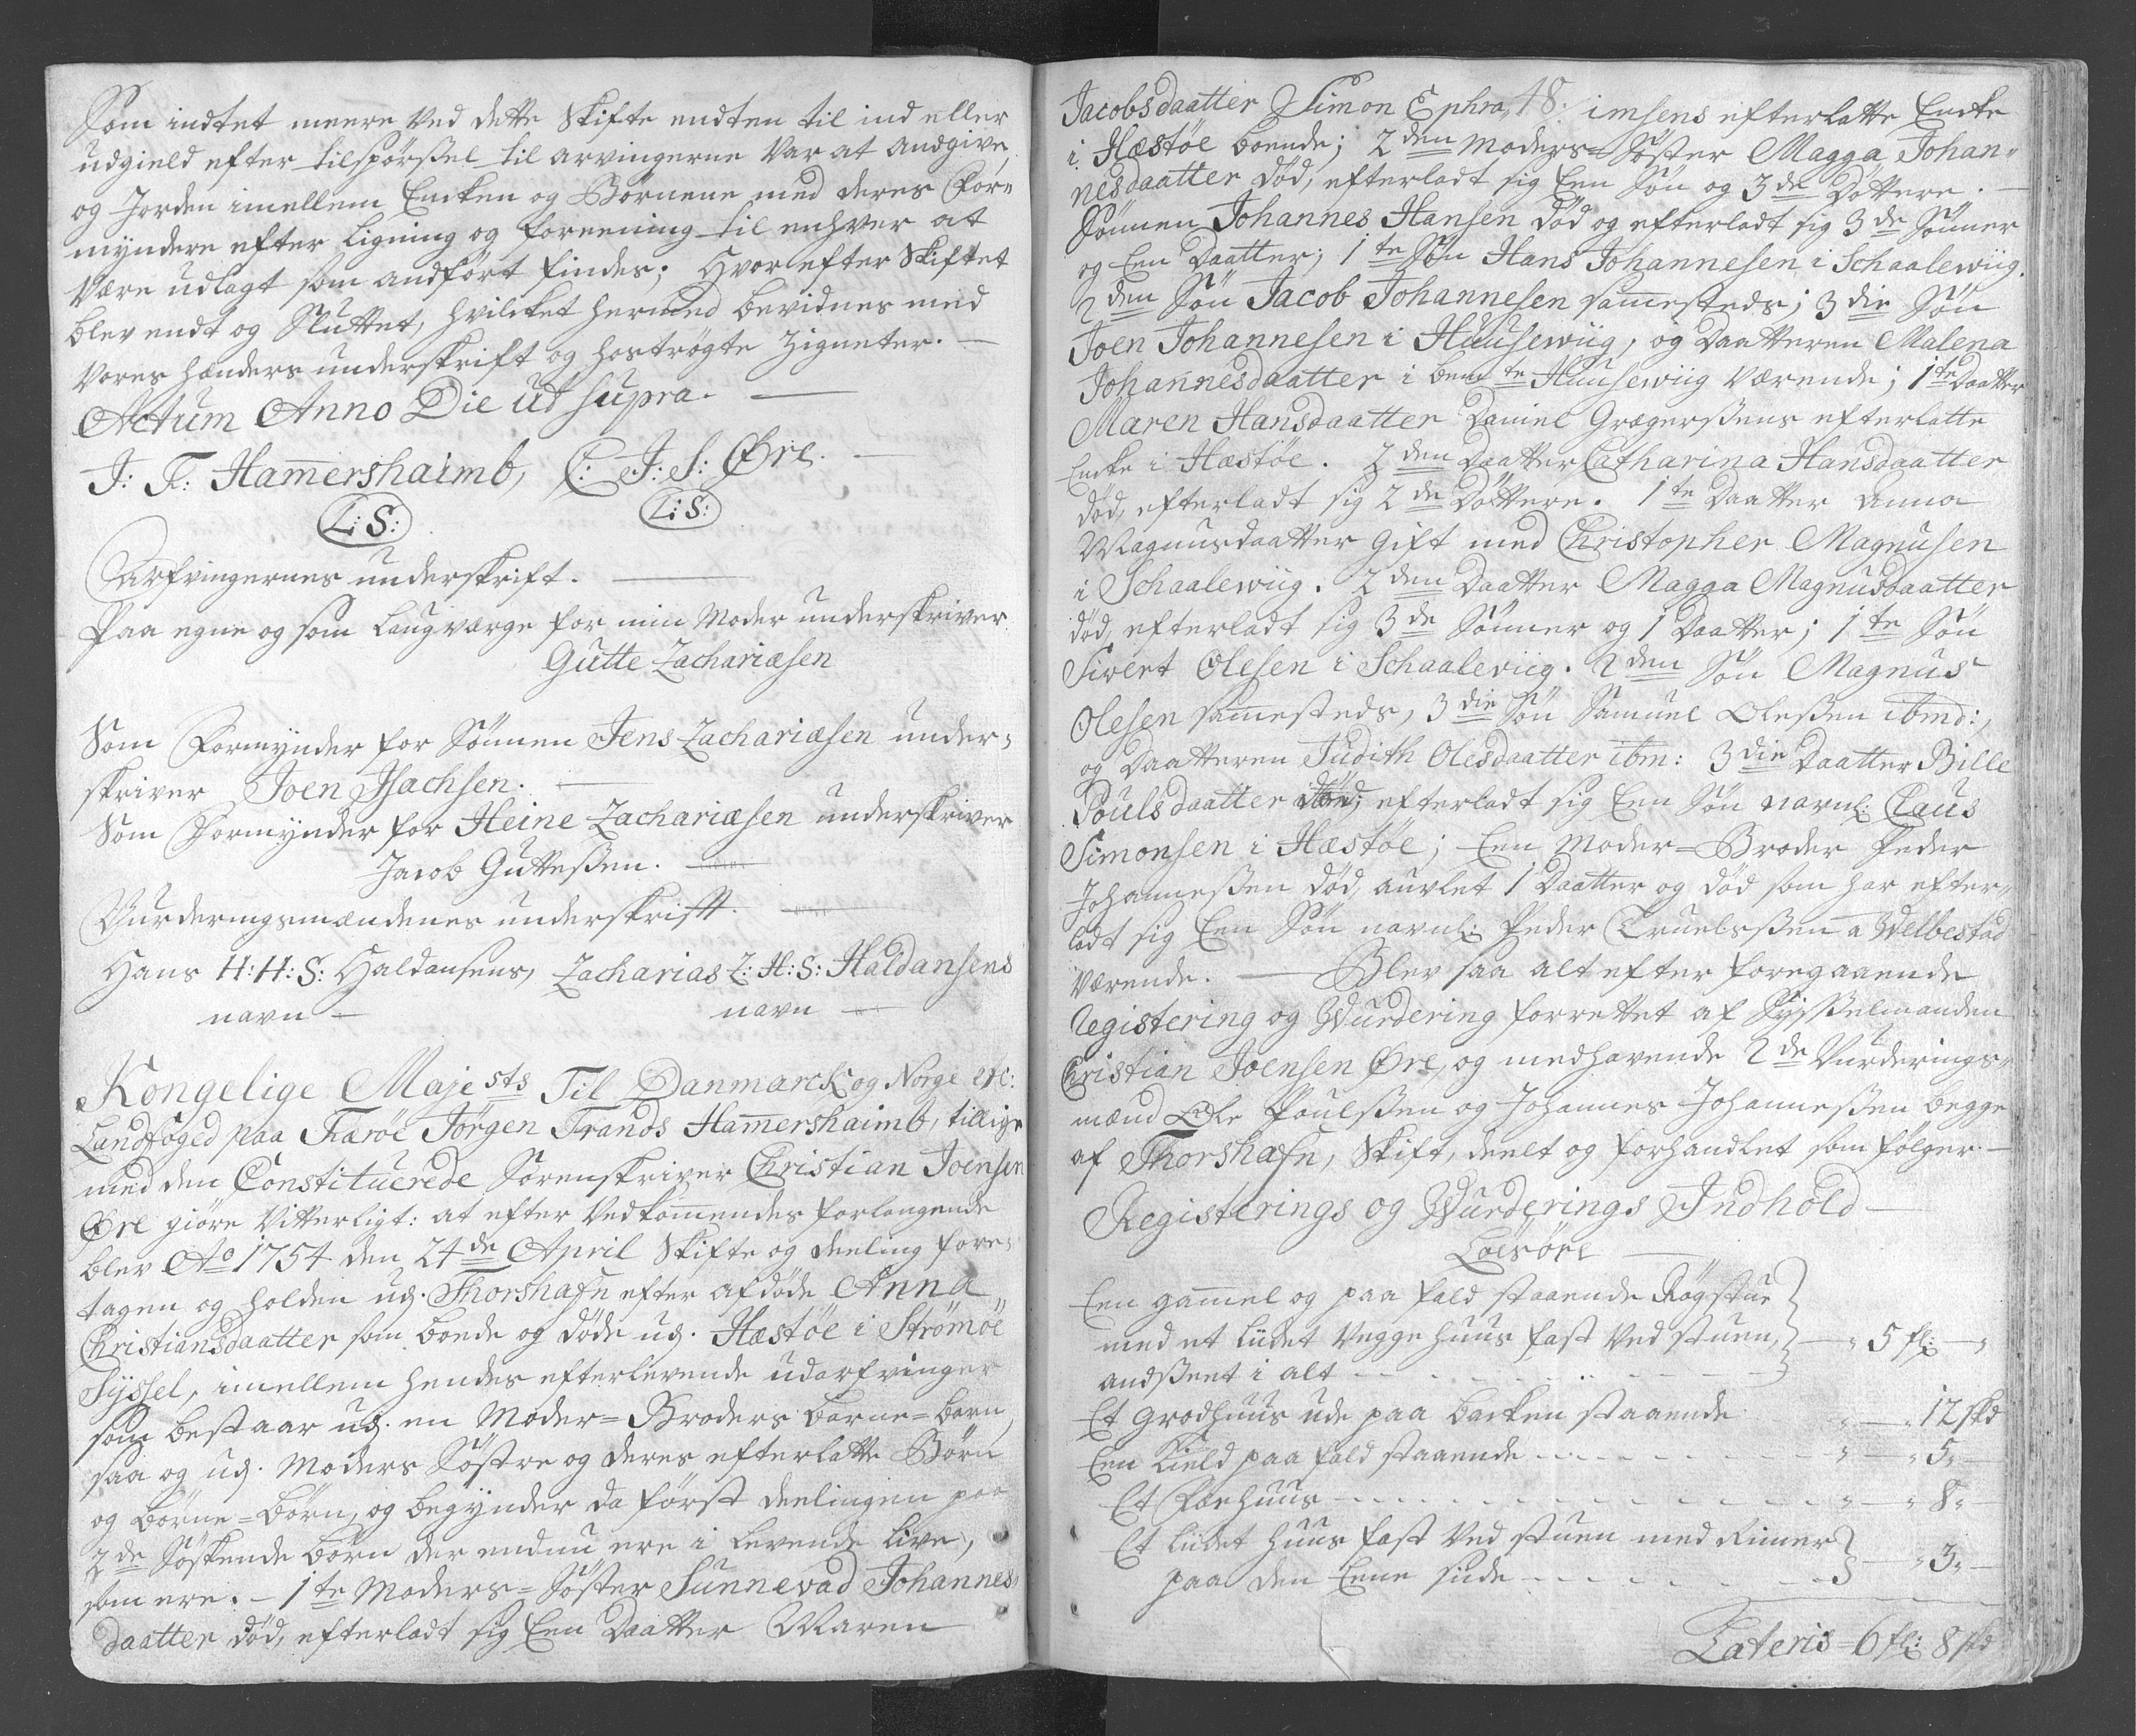 Som indtet meere ved dette Skifte endten til ind eller
udgield efter tilspörßel til arvingerne var at andgive,
og Jorden imellem Encken og Börnene med deres For=
myndere efter ligning og foreening til enhver at
være udlagt som andfört findes; Hvorefter Skiftet
blev endt og Sluttet, hvilcket hermed bevidnes med
vores hænders underskrift og hoströgte Zigneter. —
Actum Anno Die ut supra. —
J: F: Ham̄ershaimb, C: J: S: Øre. —
L: S: L: S:
Arfvingernes underskrift. —
Paa egne og som Laugværge for min Moder underskriver
Gutte Zachariæsen
Som Formynder for Sönnen Jens Zachariæsen under=
skriver Joen Jsachsen. —
Som Formynder for Heine Zachariæsen underskriver
Jacob Gutteßen. —
Vurderingsmændenes underskrift. —
Hans H: H: S: Haldansens, Zacharias Z: H: S: Haldansens
navn — navn —
Kongelige Majests Til Danmarck og Norge etc:
Landfoged paa Færöe Jörgen Frands Ham̄ershaimb, tillige
med den Constituerede Sorenskriver Christian Joensen
Øre giöre vitterligt: at efter vedkom̄endes forlangende
blev Ao 1754 den 24de April Skifte og deeling fore=
tagen og holden udj. Thorshafn efter afdöde Anna
Christiansdaatter som boede og döde udj. Hæstöe i Strömöe
Syssel, imellem hendes efterlevende udarfvinger
som bestaar udj. en Moder=Broders barne=barn,
saa og udj. Moders Söstre og deres efterlatte Börn
og börne=börn, og begynder da först deelingen paa
2de Söskende börn der endnu ere i levende live,
som ere. — 1te Moders=Söster Sunnevad Johannes=
daatter död, efterladt sig Een Daatter Maren
48:
Jacobsdaatter Simon Ephraimsens efterlatte Encke
i Hæstöe boende; 2den Moders=Söster Magga Johan=
nesdaatter död, efterladt sig Een Sön og 3de Döttere. —
Sönnen Johannes Hansen död og efterladt sig 3de Sönner
og Een Daatter; 1te Sön Hans Johannesen i Schaalewiig.
2den Sön Jacob Johannesen sam̄esteds; 3die Sön
Joen Johannesen i Huusewiig, og Daatteren Malena
Johannesdaatter i bemte Huusewiig værende; 1te Daatter
Maren Hansdaatter Daniel Grægerßens efterlatte
Encke i Hæstöe. 2den Daatter Catharina Hansdaatter
död, efterladt sig 2de Döttere. 1te Daatter Anna
Magnusdaatter gift med Christopher Magnusen
i Schaalewiig. 2den Daatter Magga Magnusdaatter
död, efterladt sig 3de Sönner og 1 Daatter; 1te Sön
Sivert Olesen i Schaaleviig. 2den Sön Magnus
Olesen sam̄esteds, 3die Sön Samuel Oleßen ibmd:,
og Daatteren Judith Olesdaatter ibm: 3die Daatter Bille
Poulsdaatter död, efterladt sig Een Sön navnl: Claus
Simonsen i Hæstöe; Een Moder=Broder Peder
Johanneßen död, auvlet 1 Daatter og död som har efter=
ladt sig Een Sön navnl: Peder Truelsßen a Welbestad
værende. — Blev saa alt efter foregaaende
Registering og Wurdering forrettet af Sysßelmanden
Christian Joensen Øre, og medhavende 2de Vurderings=
mænd Ole Poulßen og Johannes Johanneßen begge
af Thorshæfn, Skift, deelt og forhandlet som fölger. —
Registerings og Wurderings Indhold —
Loesöre —
Een gam̄el og paa fald staaende Rögstue
med et lüdet vegge huus fast ved stuen, — " 5 fl: — "
andßeet i alt — — —
Et grodhuus ude paa backen staaende " — " 12 skd
Een Kield paa fald staaende — — — " — " 5 " —
Et Foehuus — — — " — " 8 "
Et lüdet huus fast ved stuen med Rimer
paa den Eene siide — — — — " 3 " —
Lateris — 6 fl: 8 skd